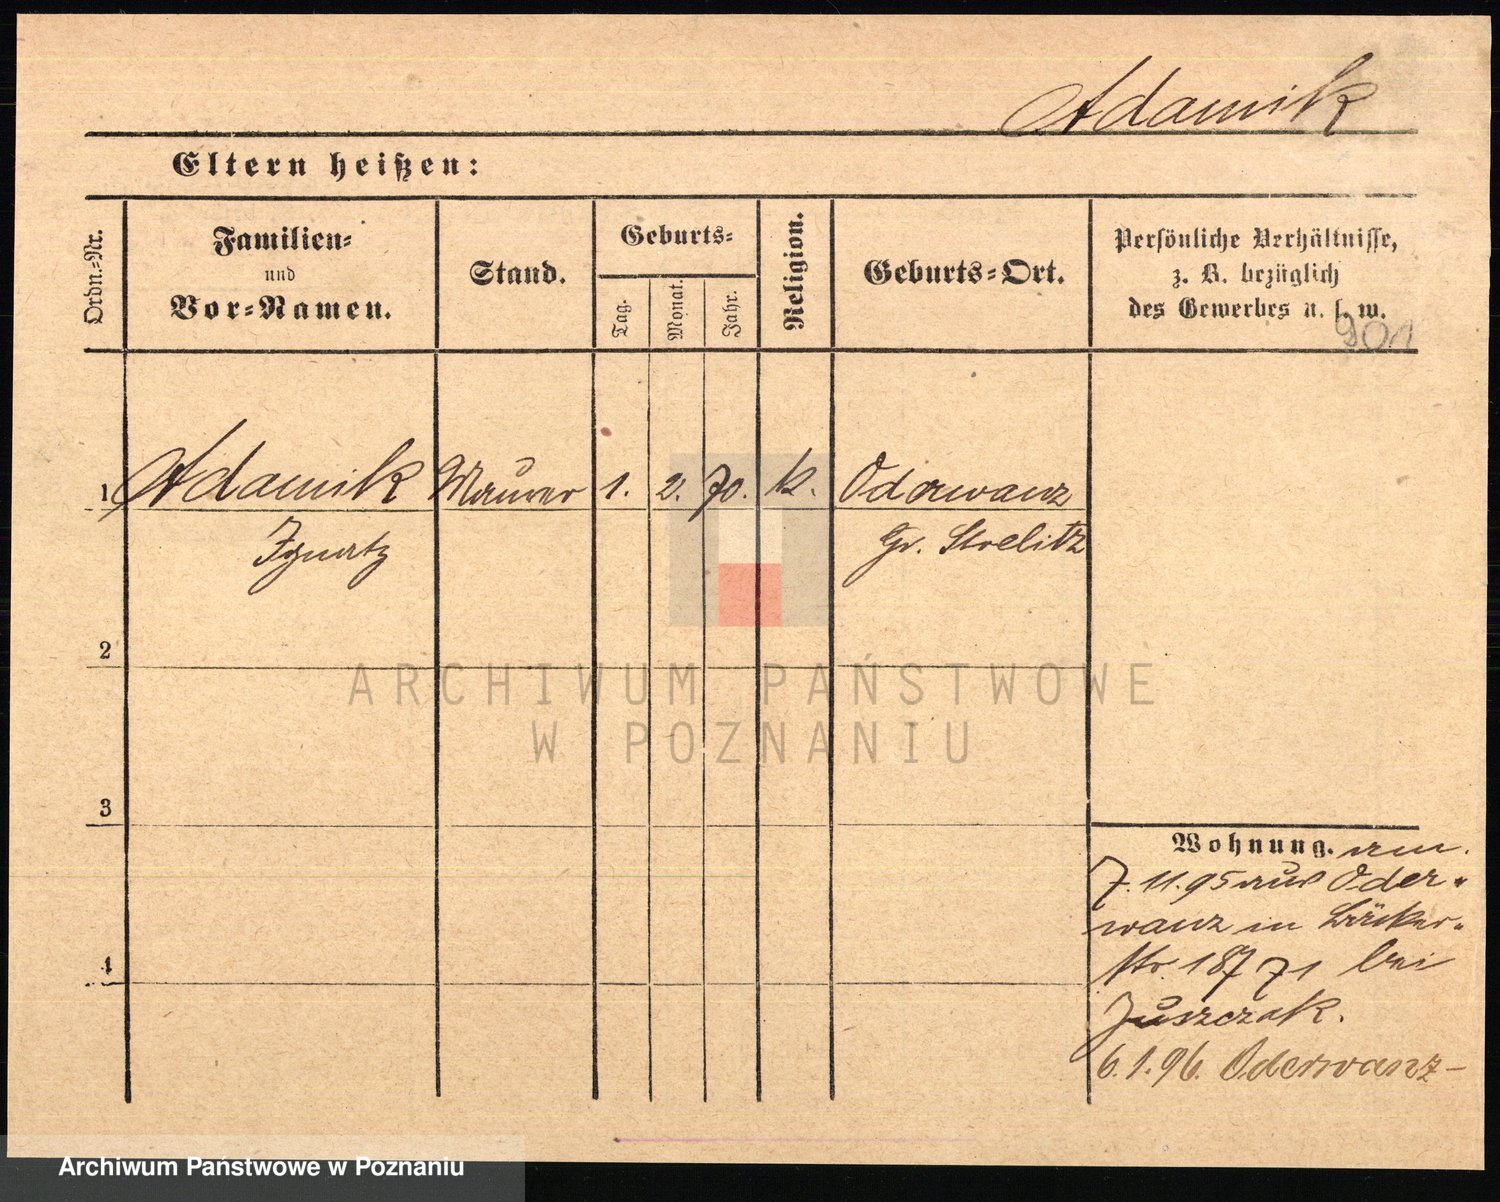 Adamik
Eltern heißen:
Ordn.-Nr.
Familien-
und
Vor-Namen.
Stand.
Geburts-
Tag.
Monat.
Jahr.
Religion.
Geburts-Ort.
Persönliche Verhältnisse,
z. B. bezüglich
des Gewerbes u. s. w.
901
1 Adamik Maurer 1. 2. 70. k. Oderwanz
Ignatz Gr. Strelitz
2
3
4
Wohnung. am
7.11.95 aus Oder-
wanz in Bäcker-
str. 18 bei
Juszczak.
6.1.96. Oderwanz-
ARCHIWUM PAŃSTWOWE
W POZNANIU
Archiwum Państwowe w Poznaniu